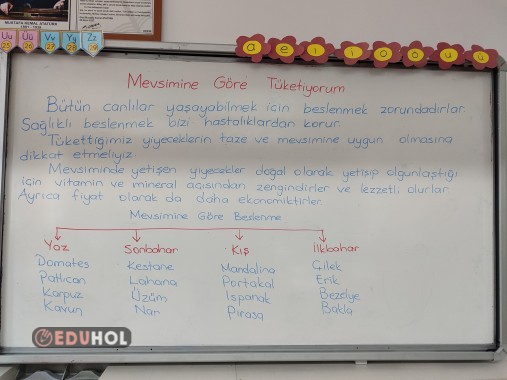 MUSTAFA KEMAL ATATÜRK
1881 - 1938
Uu Üü Vv Yy Zz
25 26 27 28 29
a e ı i o ö u ü
Mevsimine Göre Tüketiyorum
Bütün canlılar yaşayabilmek için beslenmek zorundadırlar.
Sağlıklı beslenmek bizi hastalıklardan korur.
Tükettiğimiz yiyeceklerin taze ve mevsimine uygun olmasına
dikkat etmeliyiz.
Mevsiminde yetişen yiyecekler doğal olarak yetişip olgunlaştığı
için vitamin ve mineral açısından zengindirler ve lezzetli olurlar.
Ayrıca fiyat olarak da daha ekonomiktirler.
Mevsimine Göre Beslenme
Yaz Sonbahar Kış İlkbahar
Domates Kestane Mandalina Çilek
Patlıcan Lahana Portakal Erik
Karpuz Üzüm Ispanak Bezelye
Kavun Nar Pırasa Bakla
EDUHOL